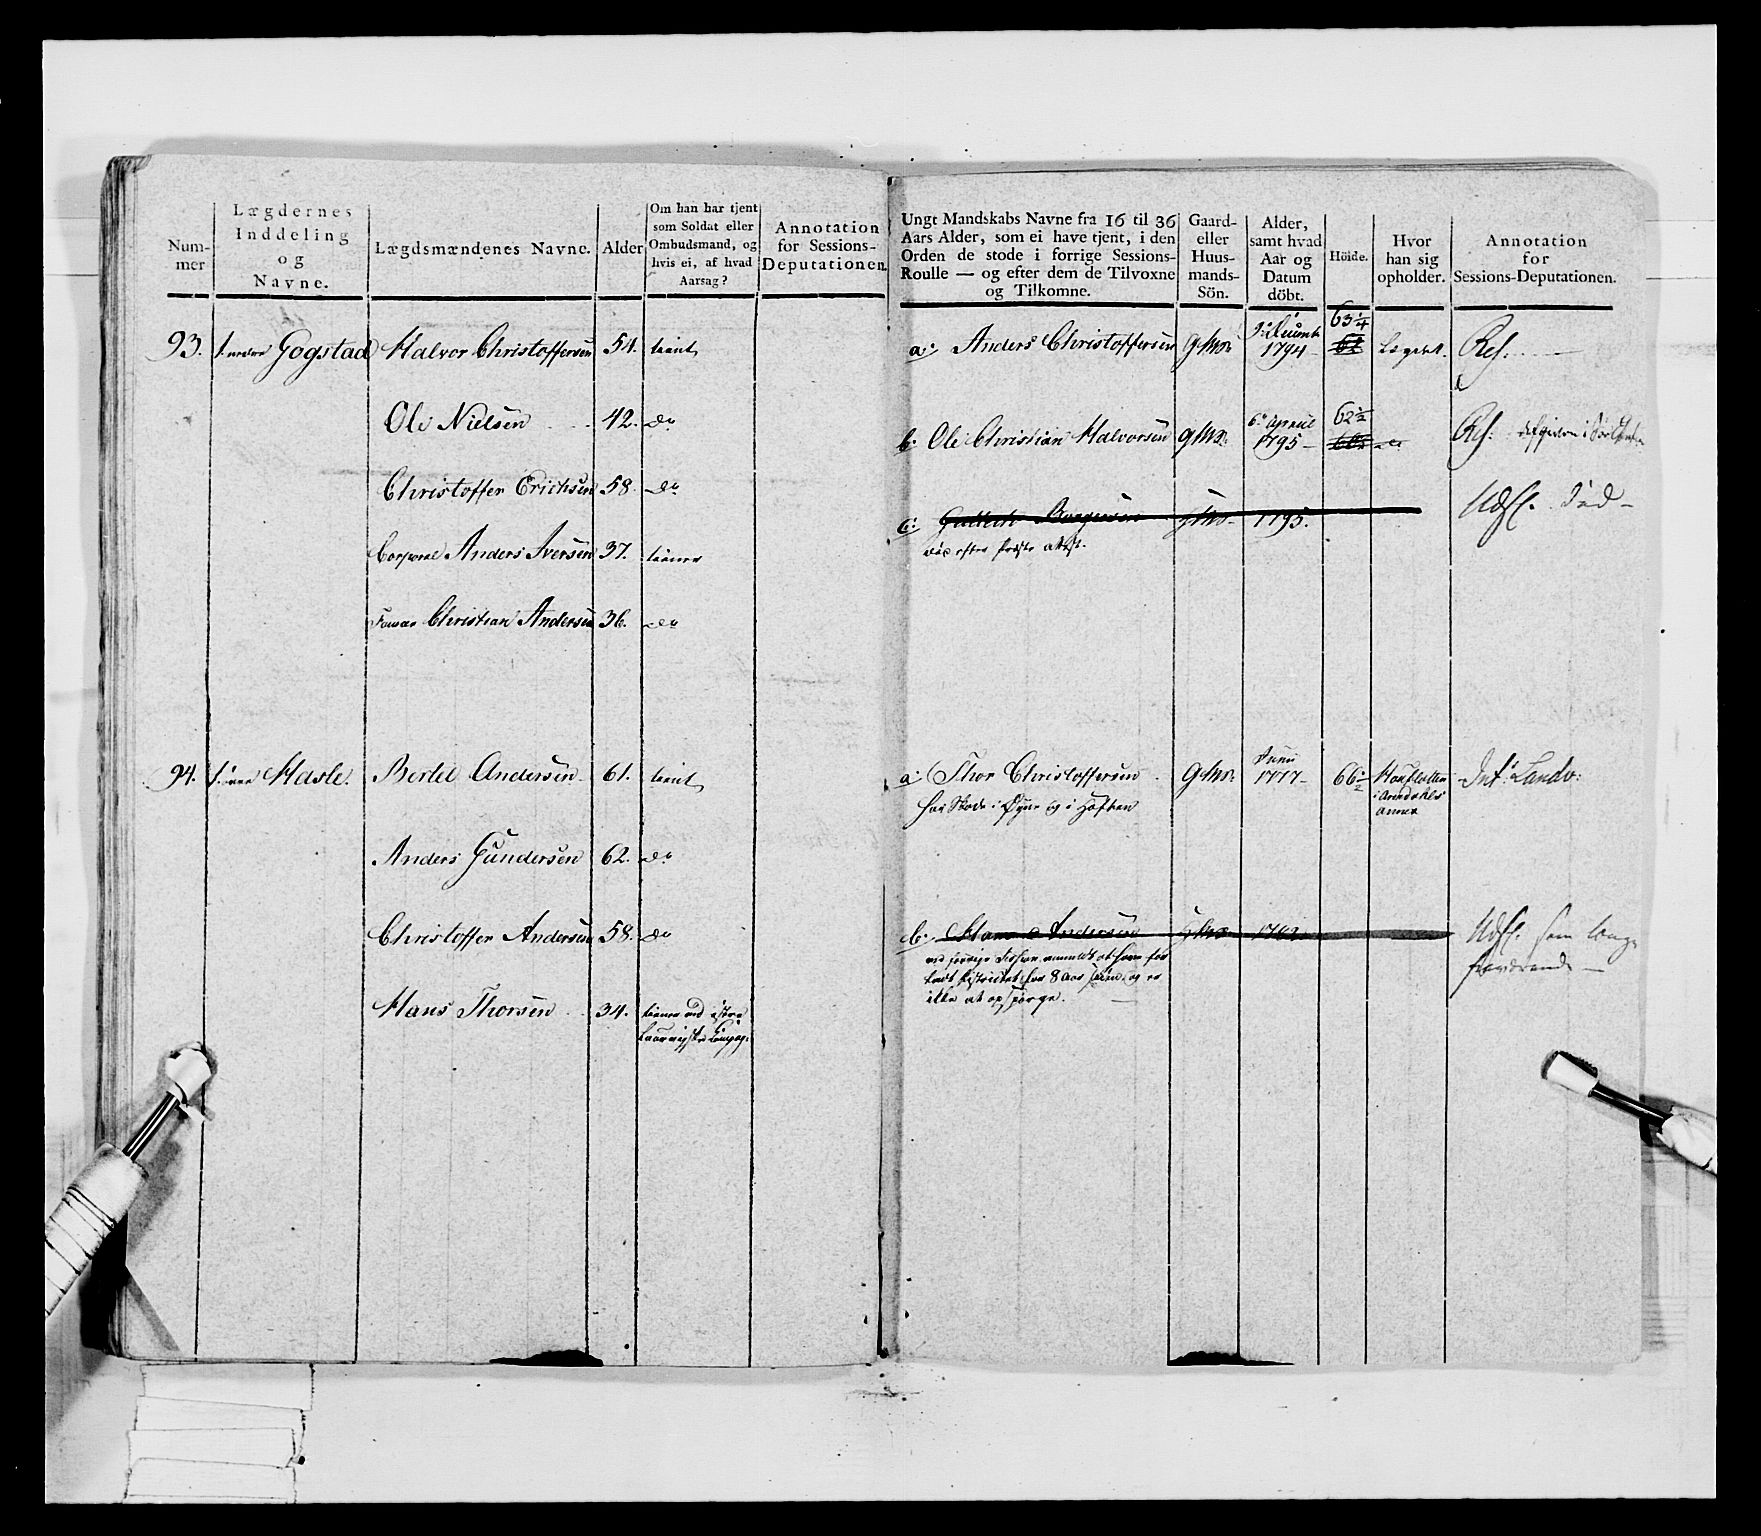 Num-
mer
Lægdernes
Inddeling
og
Navne.
Lægdsmændenes Navne.
Alder
Om han har tjent
som Soldat eller
Ombudsmand, og
hvis ei, af hvad
Aarsag?
Annotation
for Sessions-
Deputationen.
93. Gogstad Halvor Christoffersen 54. tient
Ole Nielsen 42. do
Christoffer Erichsen 58. do
Corporal Anders Iversen 37. tiener
Christian Andersen 36. do
94. Hasle. Bertel Andersen 61. tient
Anders Gundersen 62. do
Christoffer Andersen 58. do
Hans Thorsen 34. tiener ved
Ungt Mandskabs Navne fra 16 til 36
Aars Alder, som ei have tjent, i den
Orden de stode i forrige Sessions-
Roulle — og efter dem de Tilvoxne
og Tilkomne.
Gaard-
eller
Huus-
mands-
Sön.
Alder,
samt hvad
Aar og
Datum
döbt.
Höide.
Hvor
han sig
opholder.
Annotation
for
Sessions-Deputationen.
63 1/4
a: Anders Christoffersen 1794 Lægdet.
62 1/2
b: Ole Christian Halvorsen 6te April 1795
c: 1795. Udsl. død
død efter Præste attest.
a: Thor Christoffersen Junii 1777 66 1/2 Int: Landv:
har Skade i Øyne og i Hoften
i Arendahls
Annex
b: Hans Andersen Udsl. som længe
fraværende
ikke at opspørge.